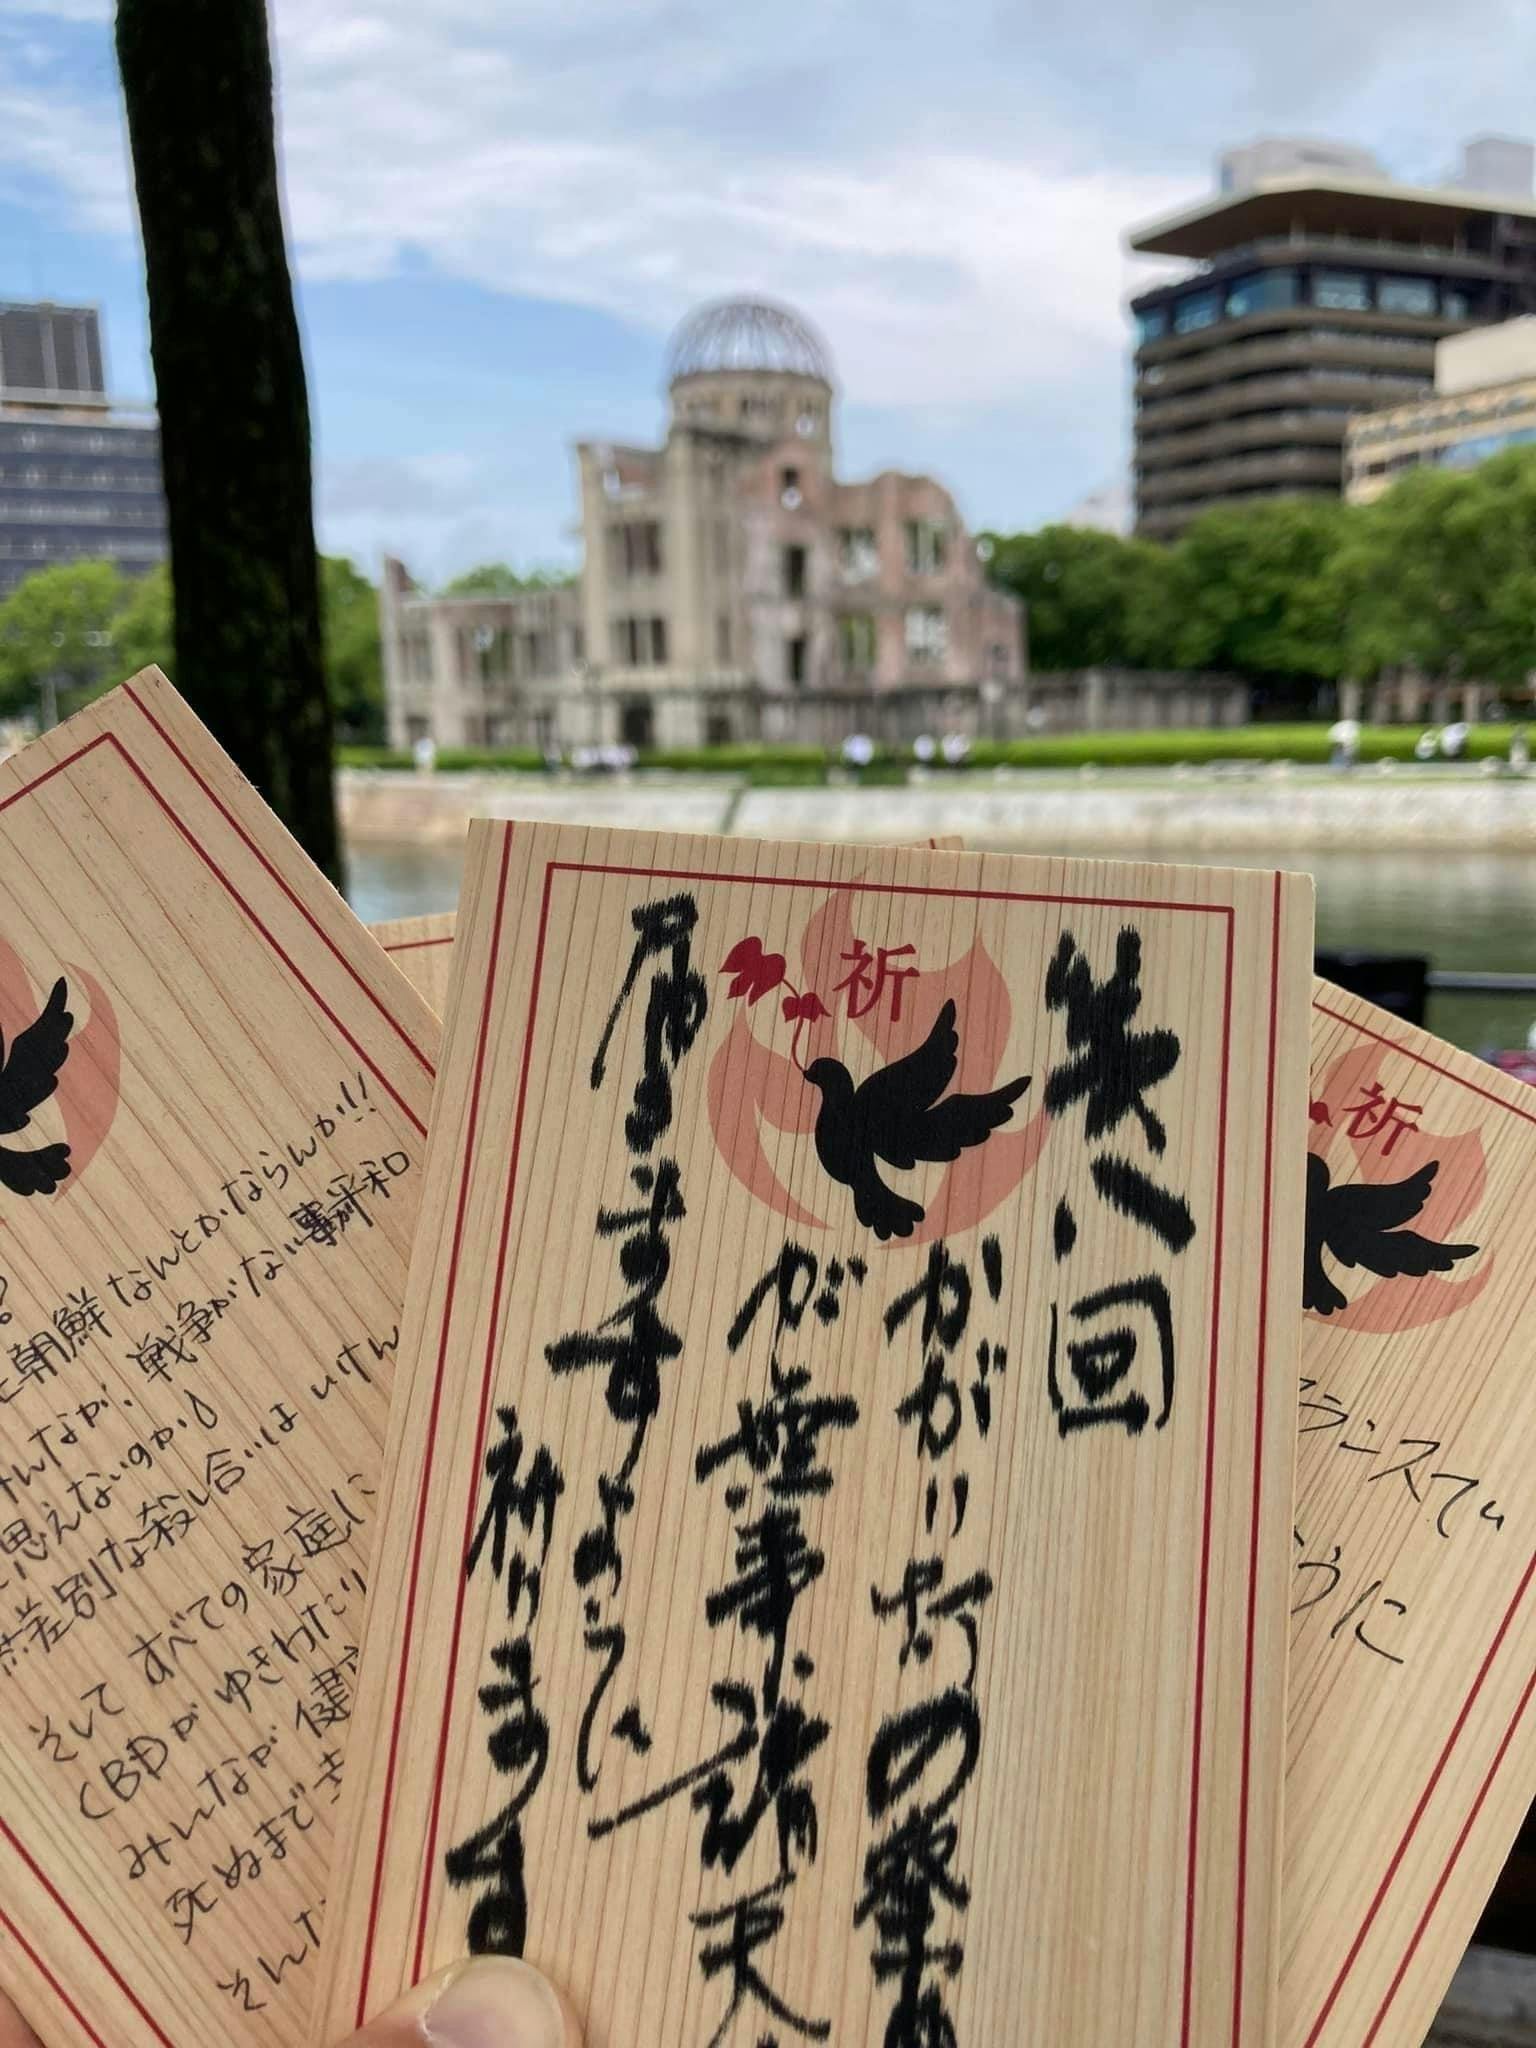 祈
第八回
かがり灯の祭典
が無事、諸天に
届きますように
祈ります
朝鮮なんとかならんか!!
んなが、戦争がない平和
思えないのか
差別な殺し合いは いけん
そして すべての家庭に
CBDが ゆきわたり
みんなが 健
死ぬまで
そんな
祈
ランスで
うに